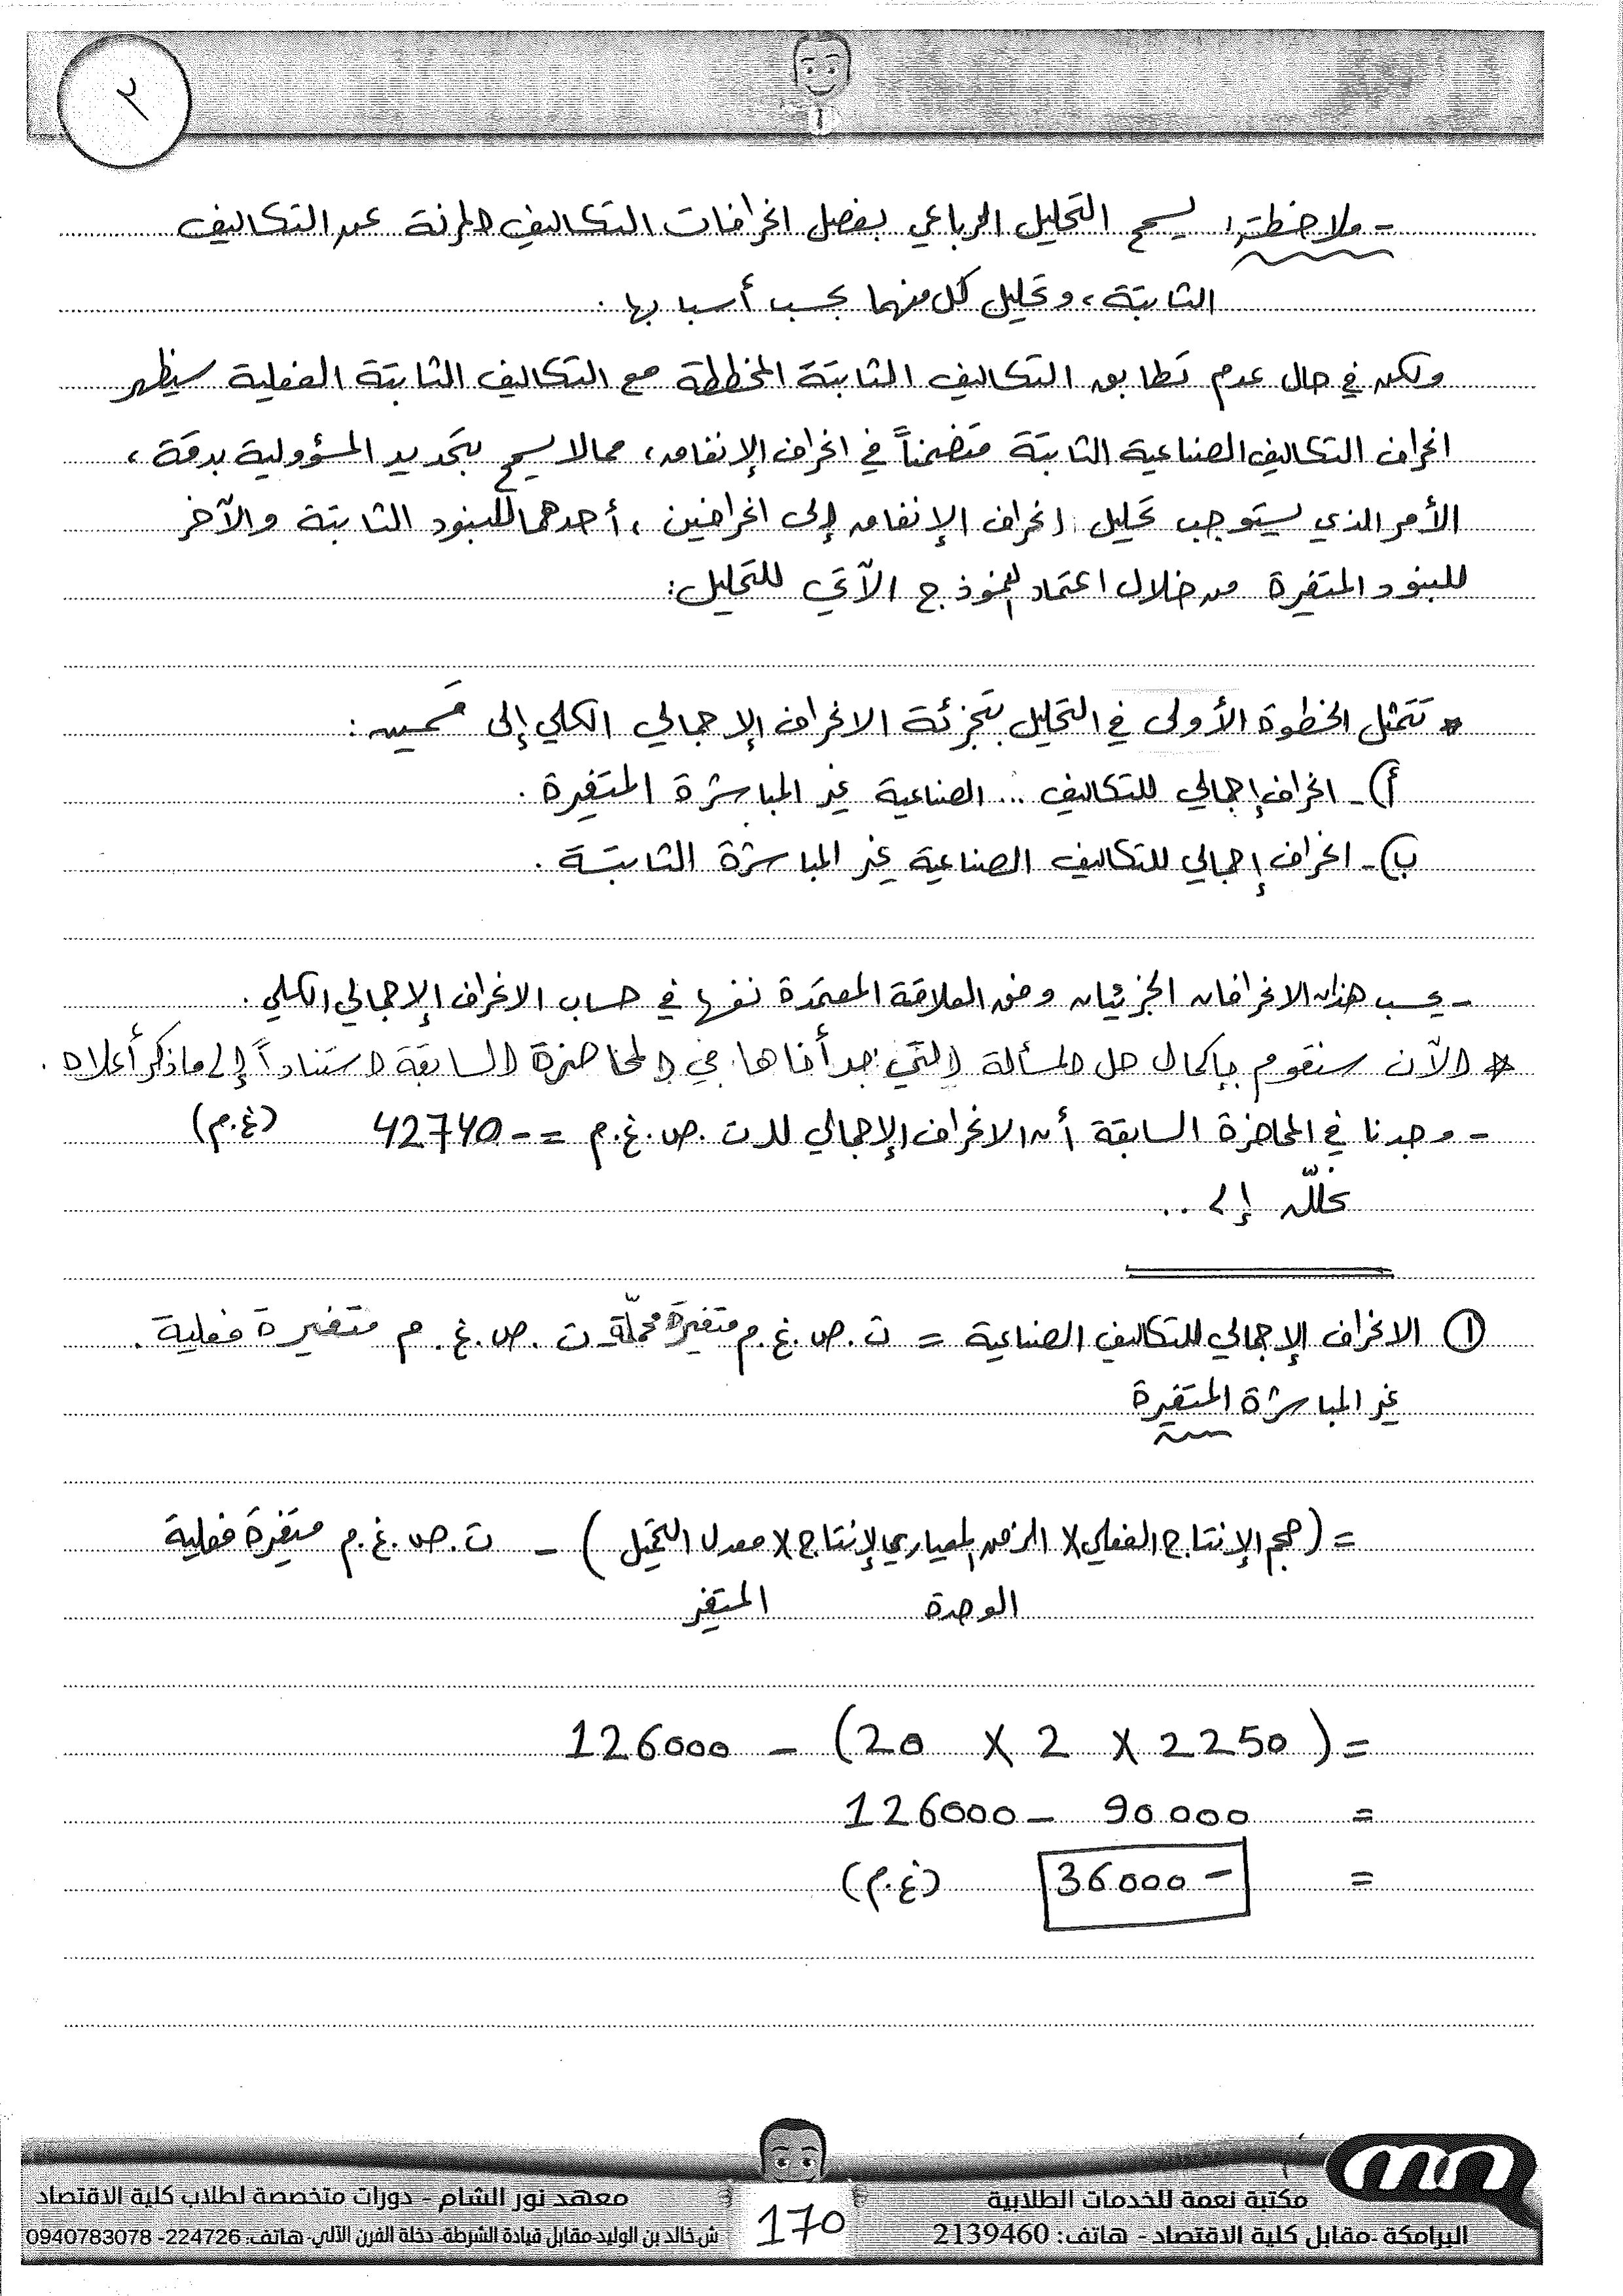 ٢
- ملاحظة: يسمح التحليل الرباعي بفصل انحرافات التكاليف المرنة عن التكاليف
الثابتة، وتحليل كل منهما بحسب أسبابها.
ولكن في حال عدم تطابق التكاليف الثابتة المخططة مع التكاليف الثابتة الفعلية سيظهر
انحراف التكاليف الصناعية الثابتة متضمناً في انحراف الإنفاق، مما لا يسمح بتحديد المسؤولية بدقة،
الأمر الذي يستوجب تحليل انحراف الإنفاق إلى انحرافين، أحدهما للبنود الثابتة والآخر
للبنود المتغيرة من خلال اعتماد النموذج الآتي للتحليل:
* تتمثل الخطوة الأولى في التحليل بتجزئة الانحراف الإجمالي الكلي إلى قسمين:
أ)- انحراف إجمالي للتكاليف .. الصناعية غير المباشرة المتغيرة.
ب)- انحراف إجمالي للتكاليف الصناعية غير المباشرة الثابتة.
- يحسب هذان الانحرافان الجزئيان وفق العلاقة المعتمدة نفسها في حساب الانحراف الإجمالي الكلي.
* الآن سنقوم بإكمال حل المسألة التي بدأناها في المحاضرة السابقة استناداً إلى ما ذكر أعلاه.
- وجدنا في المحاضرة السابقة أن الانحراف الإجمالي للـ ت.ص.غ.م = -42740 (غ.م)
نحلّله إلى ..
① الانحراف الإجمالي للتكاليف الصناعية = ت.ص.غ.م متغيرة محمّلة - ت.ص.غ.م متغيرة فعلية.
غير المباشرة المتغيرة
= (حجم الإنتاج الفعلي X الزمن المعياري لإنتاج X معدل التحميل) - ت.ص.غ.م متغيرة فعلية
الوحدة المتغير
= (2250 X 2 X 20) - 126000
= 90000 - 126000
= -36000 (غ.م)
مكتبة نعمة للخدمات الطلابية
البرامكة -مقابل كلية الاقتصاد - هاتف: 2139460
170
معهد نور الشام - دورات متخصصة لطلاب كلية الاقتصاد
ش.خالد بن الوليد-مقابل قيادة الشرطة- دخلة الفرن الآلي- هاتف: 224726- 0940783078